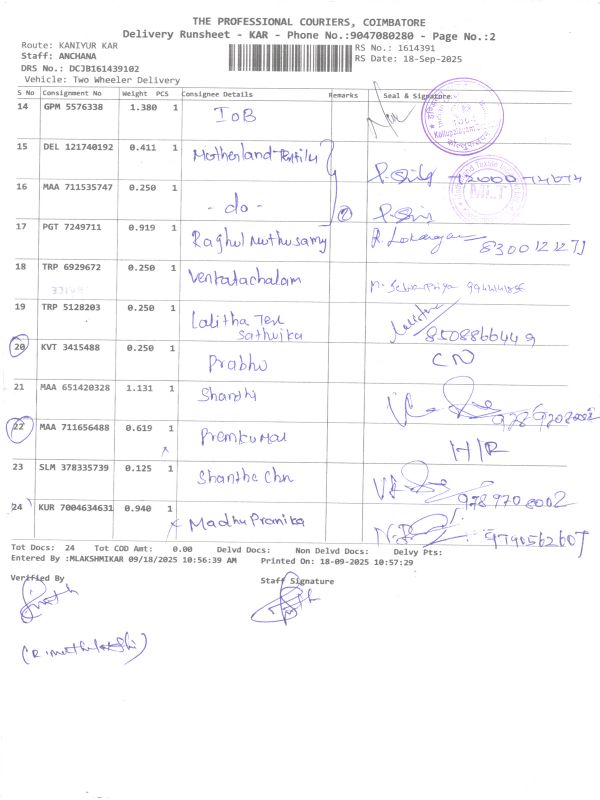 THE PROFESSIONAL COURIERS, COIMBATORE
Delivery Runsheet - KAR - Phone No.:9047080280 - Page No.:2
Route: KANIYUR KAR
Staff: ANCHANA
DRS No.: DCJB161439102
Vehicle: Two Wheeler Delivery
RS No.: 1614391
RS Date: 18-Sep-2025
S No Consignment No Weight PCS Consignee Details Remarks Seal & Signature
14 GPM 5576338 1.380 1 IOB
15 DEL 121740192 0.411 1 Motherland Textile
16 MAA 711535747 0.250 1 - do - 2
17 PGT 7249711 0.919 1 Raghul Muthusamy R. Lokangan
18 TRP 6929672 0.250 1 Venkatachalam
19 TRP 5128203 0.250 1 Lalitha Tex Sathvika Lalitha 8508866449
20 KVT 3415488 0.250 1 Prabhu CN
21 MAA 651420328 1.131 1 Shanthi
22 MAA 711656488 0.619 1 Premkumar H/R
23 SLM 378335739 0.125 1 Shantha Chn 9789708002
24 KUR 7004634631 0.940 1 Madhu Pramika 9790562607
Tot Docs: 24 Tot COD Amt: 0.00 Delvd Docs: Non Delvd Docs: Delvy Pts:
Entered By :MLAKSHMIKAR 09/18/2025 10:56:39 AM Printed On: 18-09-2025 10:57:29
Verified By Staff Signature